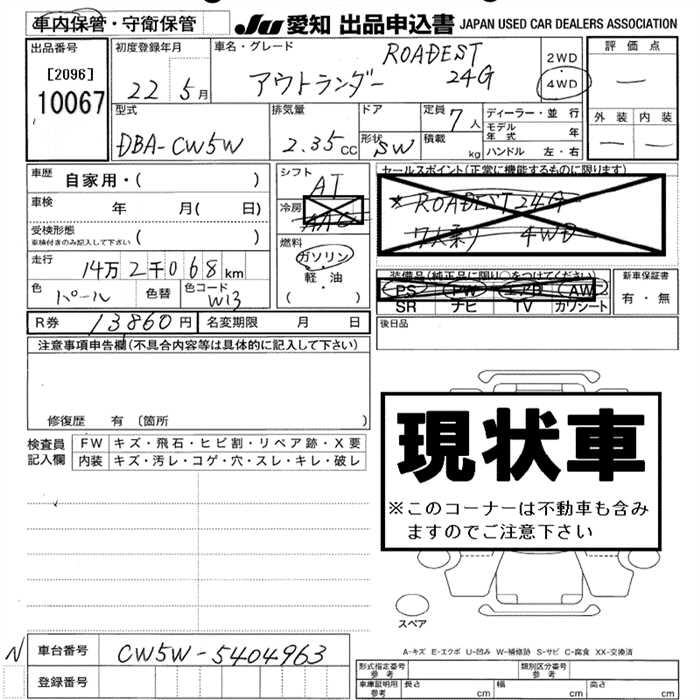 車内保管・守衛保管 JU 愛知 出品申込書 JAPAN USED CAR DEALERS ASSOCIATION
出品番号 初度登録年月 車名・グレード 評価点
[2096] 22年5月 アウトランダー ROADEST 24G 2WD 4WD
10067 ー
外装 内装
ー ー
型式 排気量 ドア 定員 7人 ディーラー・並行
DBA-CW5W 2.35CC 形状 SW 積載 kg モデル年式 年
ハンドル 左・右
車歴 自家用・( ) シフト AT セールスポイント(正常に機能するものに限ります)
車検 年 月( 日) 冷房 AAC ※ROADEST 24G
受検形態 車検付きのみ記入して下さい ( ) 7人乗り 4WD
走行 14万2千068km 燃料 ガソリン・軽油 ( )
装備品(純正品に限り○をつけてください) 新車保証書
色 パール 色替 色コード W13 PS PW エアB AW 有・無
SR ナビ TV カワシート
R券 13860円 名変期限 月 日 後日品
注意事項申告欄(不具合内容等は具体的に記入して下さい)
修復歴 有 〔箇所 〕
検査員記入欄 FW キズ・飛石・ヒビ割・リペア跡・X要
内装 キズ・汚レ・コゲ・穴・スレ・キレ・破レ
現状車
※このコーナーは不動車も含み
ますのでご注意下さい
スペア
A-キズ E-エクボ U-凹み W-補修跡 S-サビ C-腐食 XX-交換済
N 車台番号 CW5W-5404963
登録番号
形式指定番号 参考 類別区分番号 参考
車庫証明用 参考 長さ cm 幅 cm 高さ cm